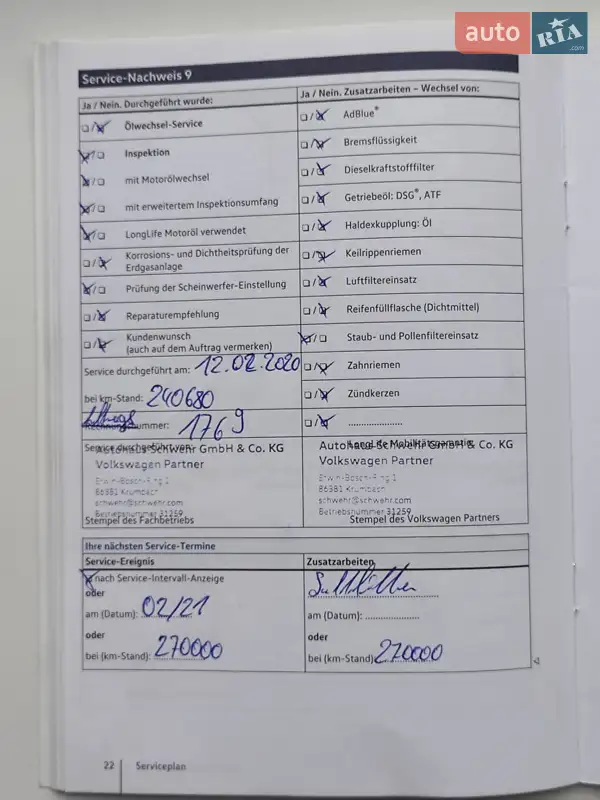 auto RIA .com
Service-Nachweis 9
Ja / Nein. Durchgeführt wurde:
Ölwechsel-Service
Inspektion
mit Motorölwechsel
mit erweitertem Inspektionsumfang
LongLife Motoröl verwendet
Korrosions- und Dichtheitsprüfung der
Erdgasanlage
Prüfung der Scheinwerfer-Einstellung
Reparaturempfehlung
Kundenwunsch
(auch auf dem Auftrag vermerken)
Service durchgeführt am: 12.02.2020
bei km-Stand: 240680
nummer: 1769
Service durchgeführt von:
Autohaus Schwehr GmbH & Co. KG
Volkswagen Partner
Erwin-Bosch-Ring 1
86381 Krumbach
schwehr@schwehr.com
Betriebsnummer 31259
Stempel des Fachbetriebs
Ja / Nein. Zusatzarbeiten – Wechsel von:
AdBlue®
Bremsflüssigkeit
Dieselkraftstofffilter
Getriebeöl: DSG®, ATF
Haldexkupplung: Öl
Keilrippenriemen
Luftfiltereinsatz
Reifenfüllflasche (Dichtmittel)
Staub- und Pollenfiltereinsatz
Zahnriemen
Zündkerzen
......................
LongLife Mobilitätsgarantie
Autohaus Schwehr GmbH & Co. KG
Volkswagen Partner
Erwin-Bosch-Ring 1
86381 Krumbach
schwehr@schwehr.com
Betriebsnummer 31259
Stempel des Volkswagen Partners
Ihre nächsten Service-Termine
Service-Ereignis
nach Service-Intervall-Anzeige
oder
am (Datum): 02/21
oder
bei (km-Stand): 270000
Zusatzarbeiten
am (Datum): ....................
oder
bei (km-Stand) 270000
22 Serviceplan